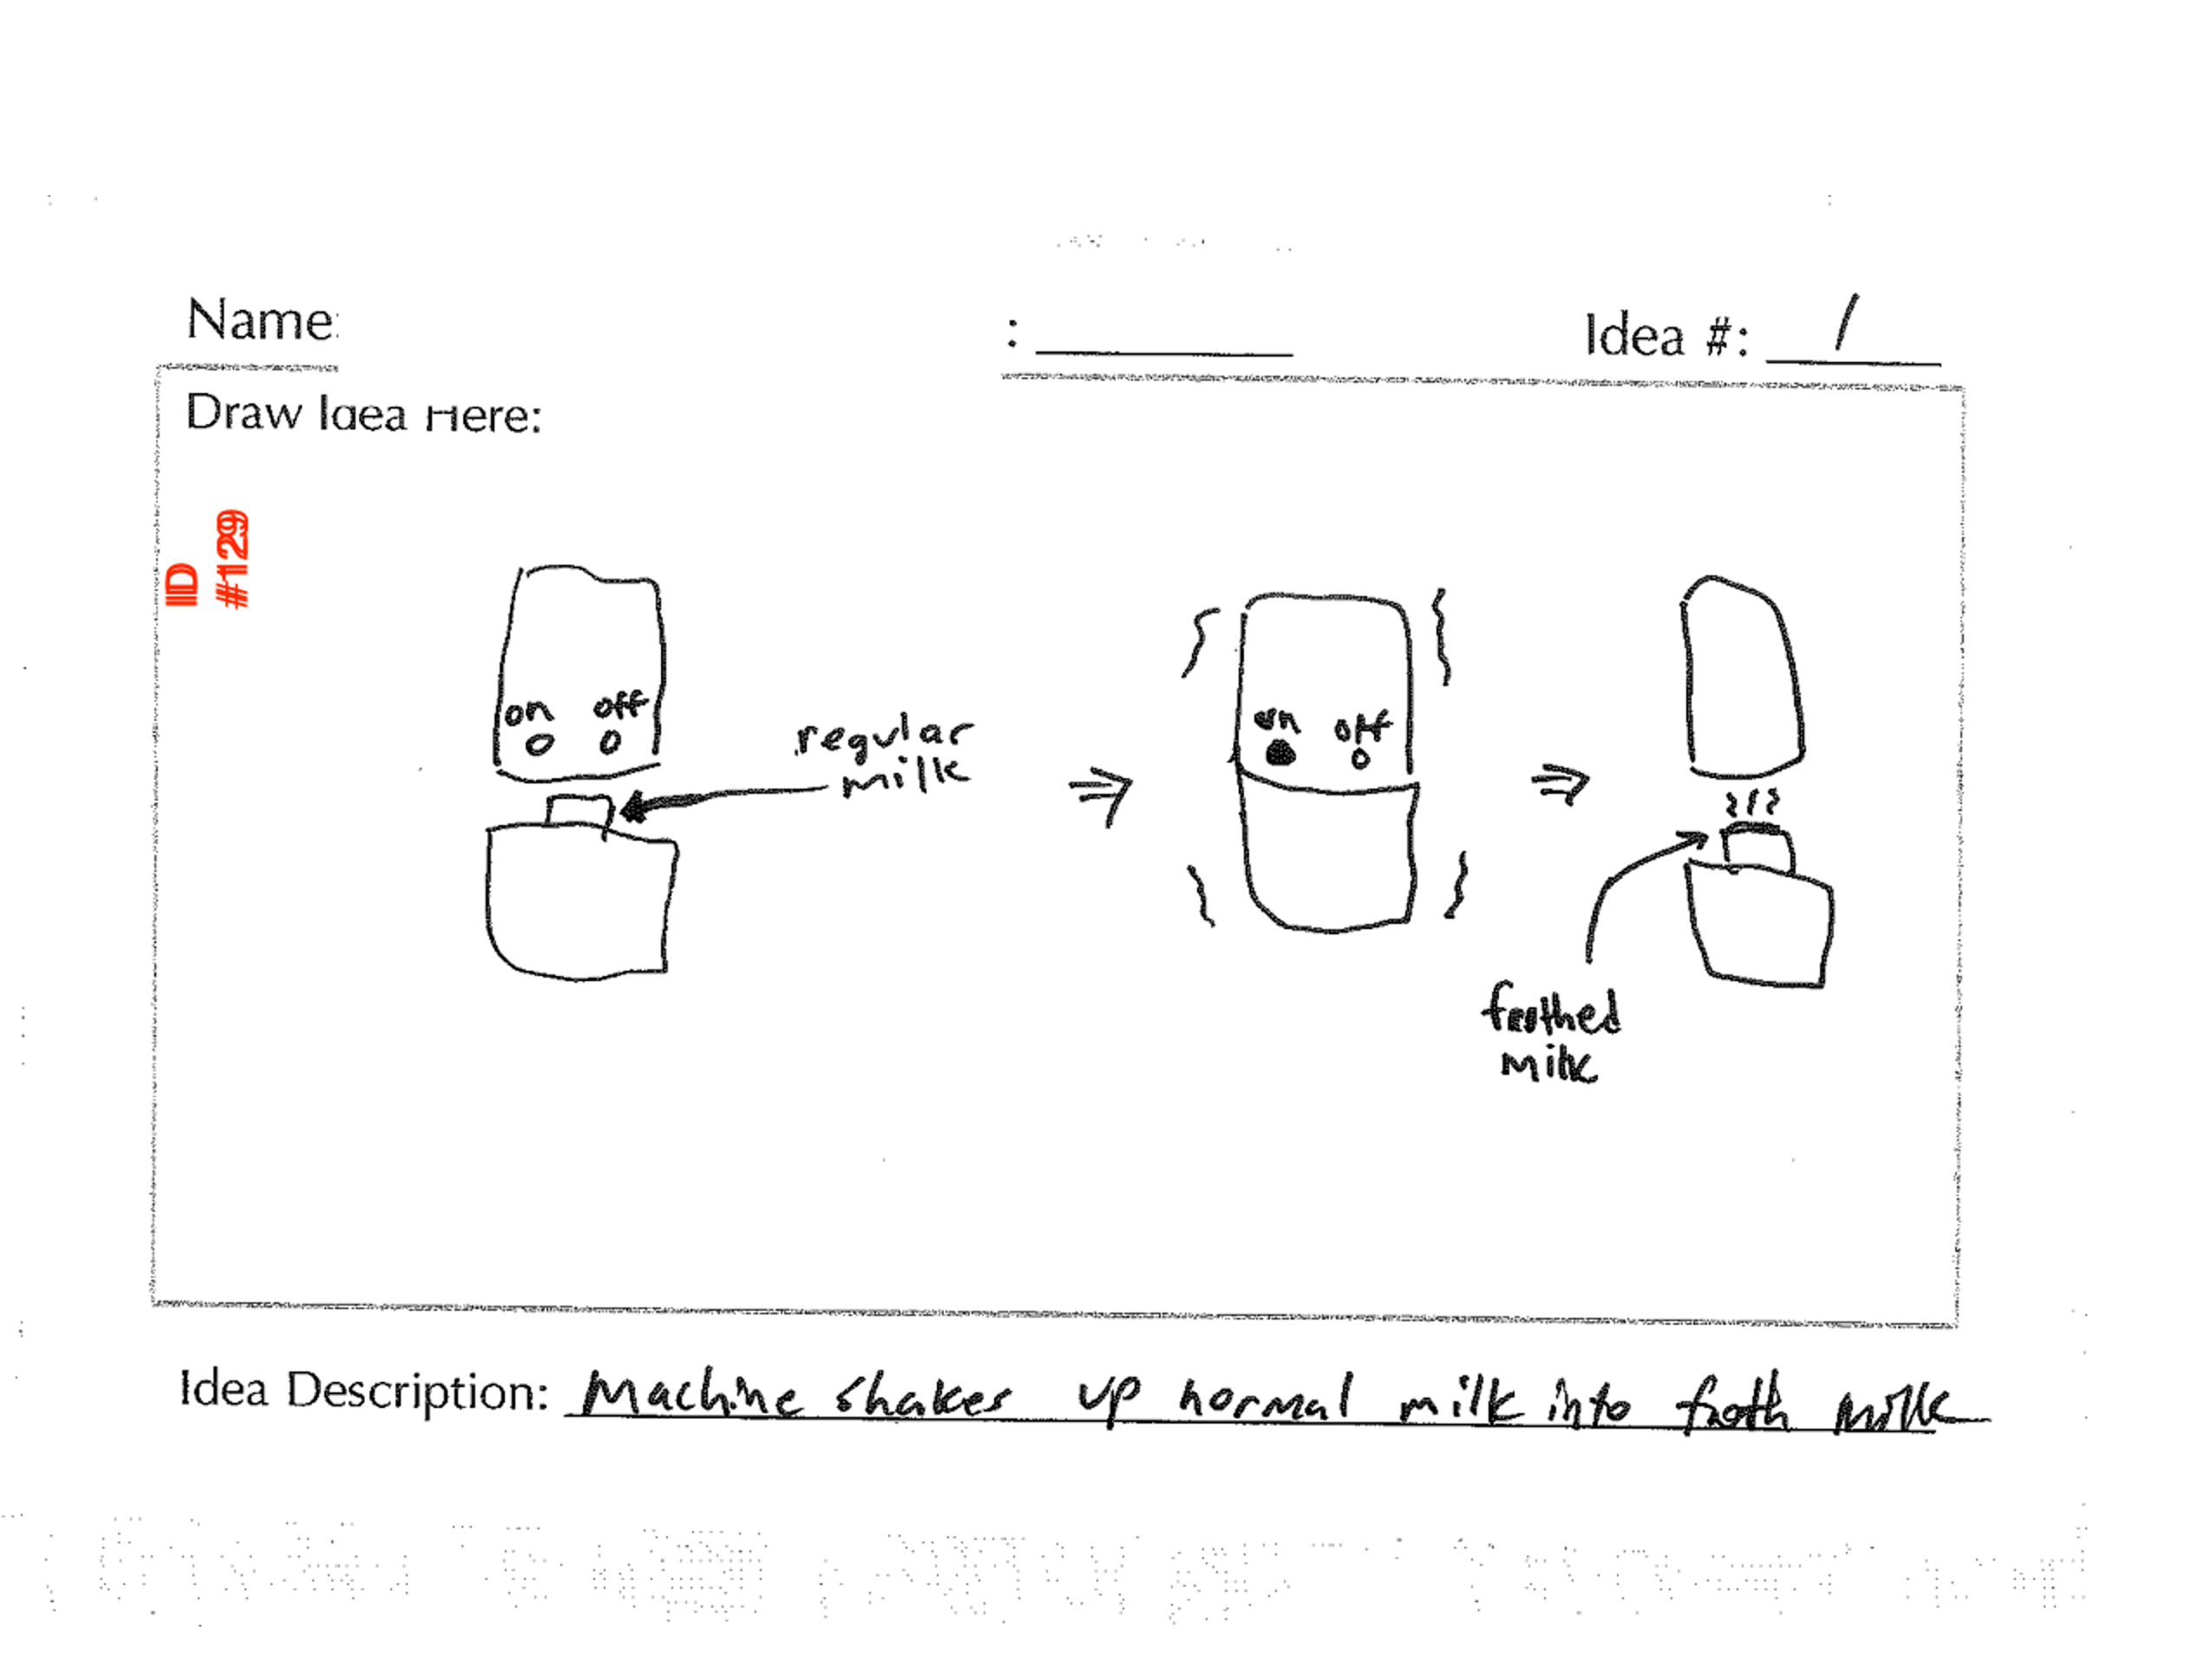 Name:
: Idea #: 1
Draw Idea Here:
ID
#129
on off
regular
milk
on off
frothed
milk
Idea Description: Machine shakes up normal milk into froth milk